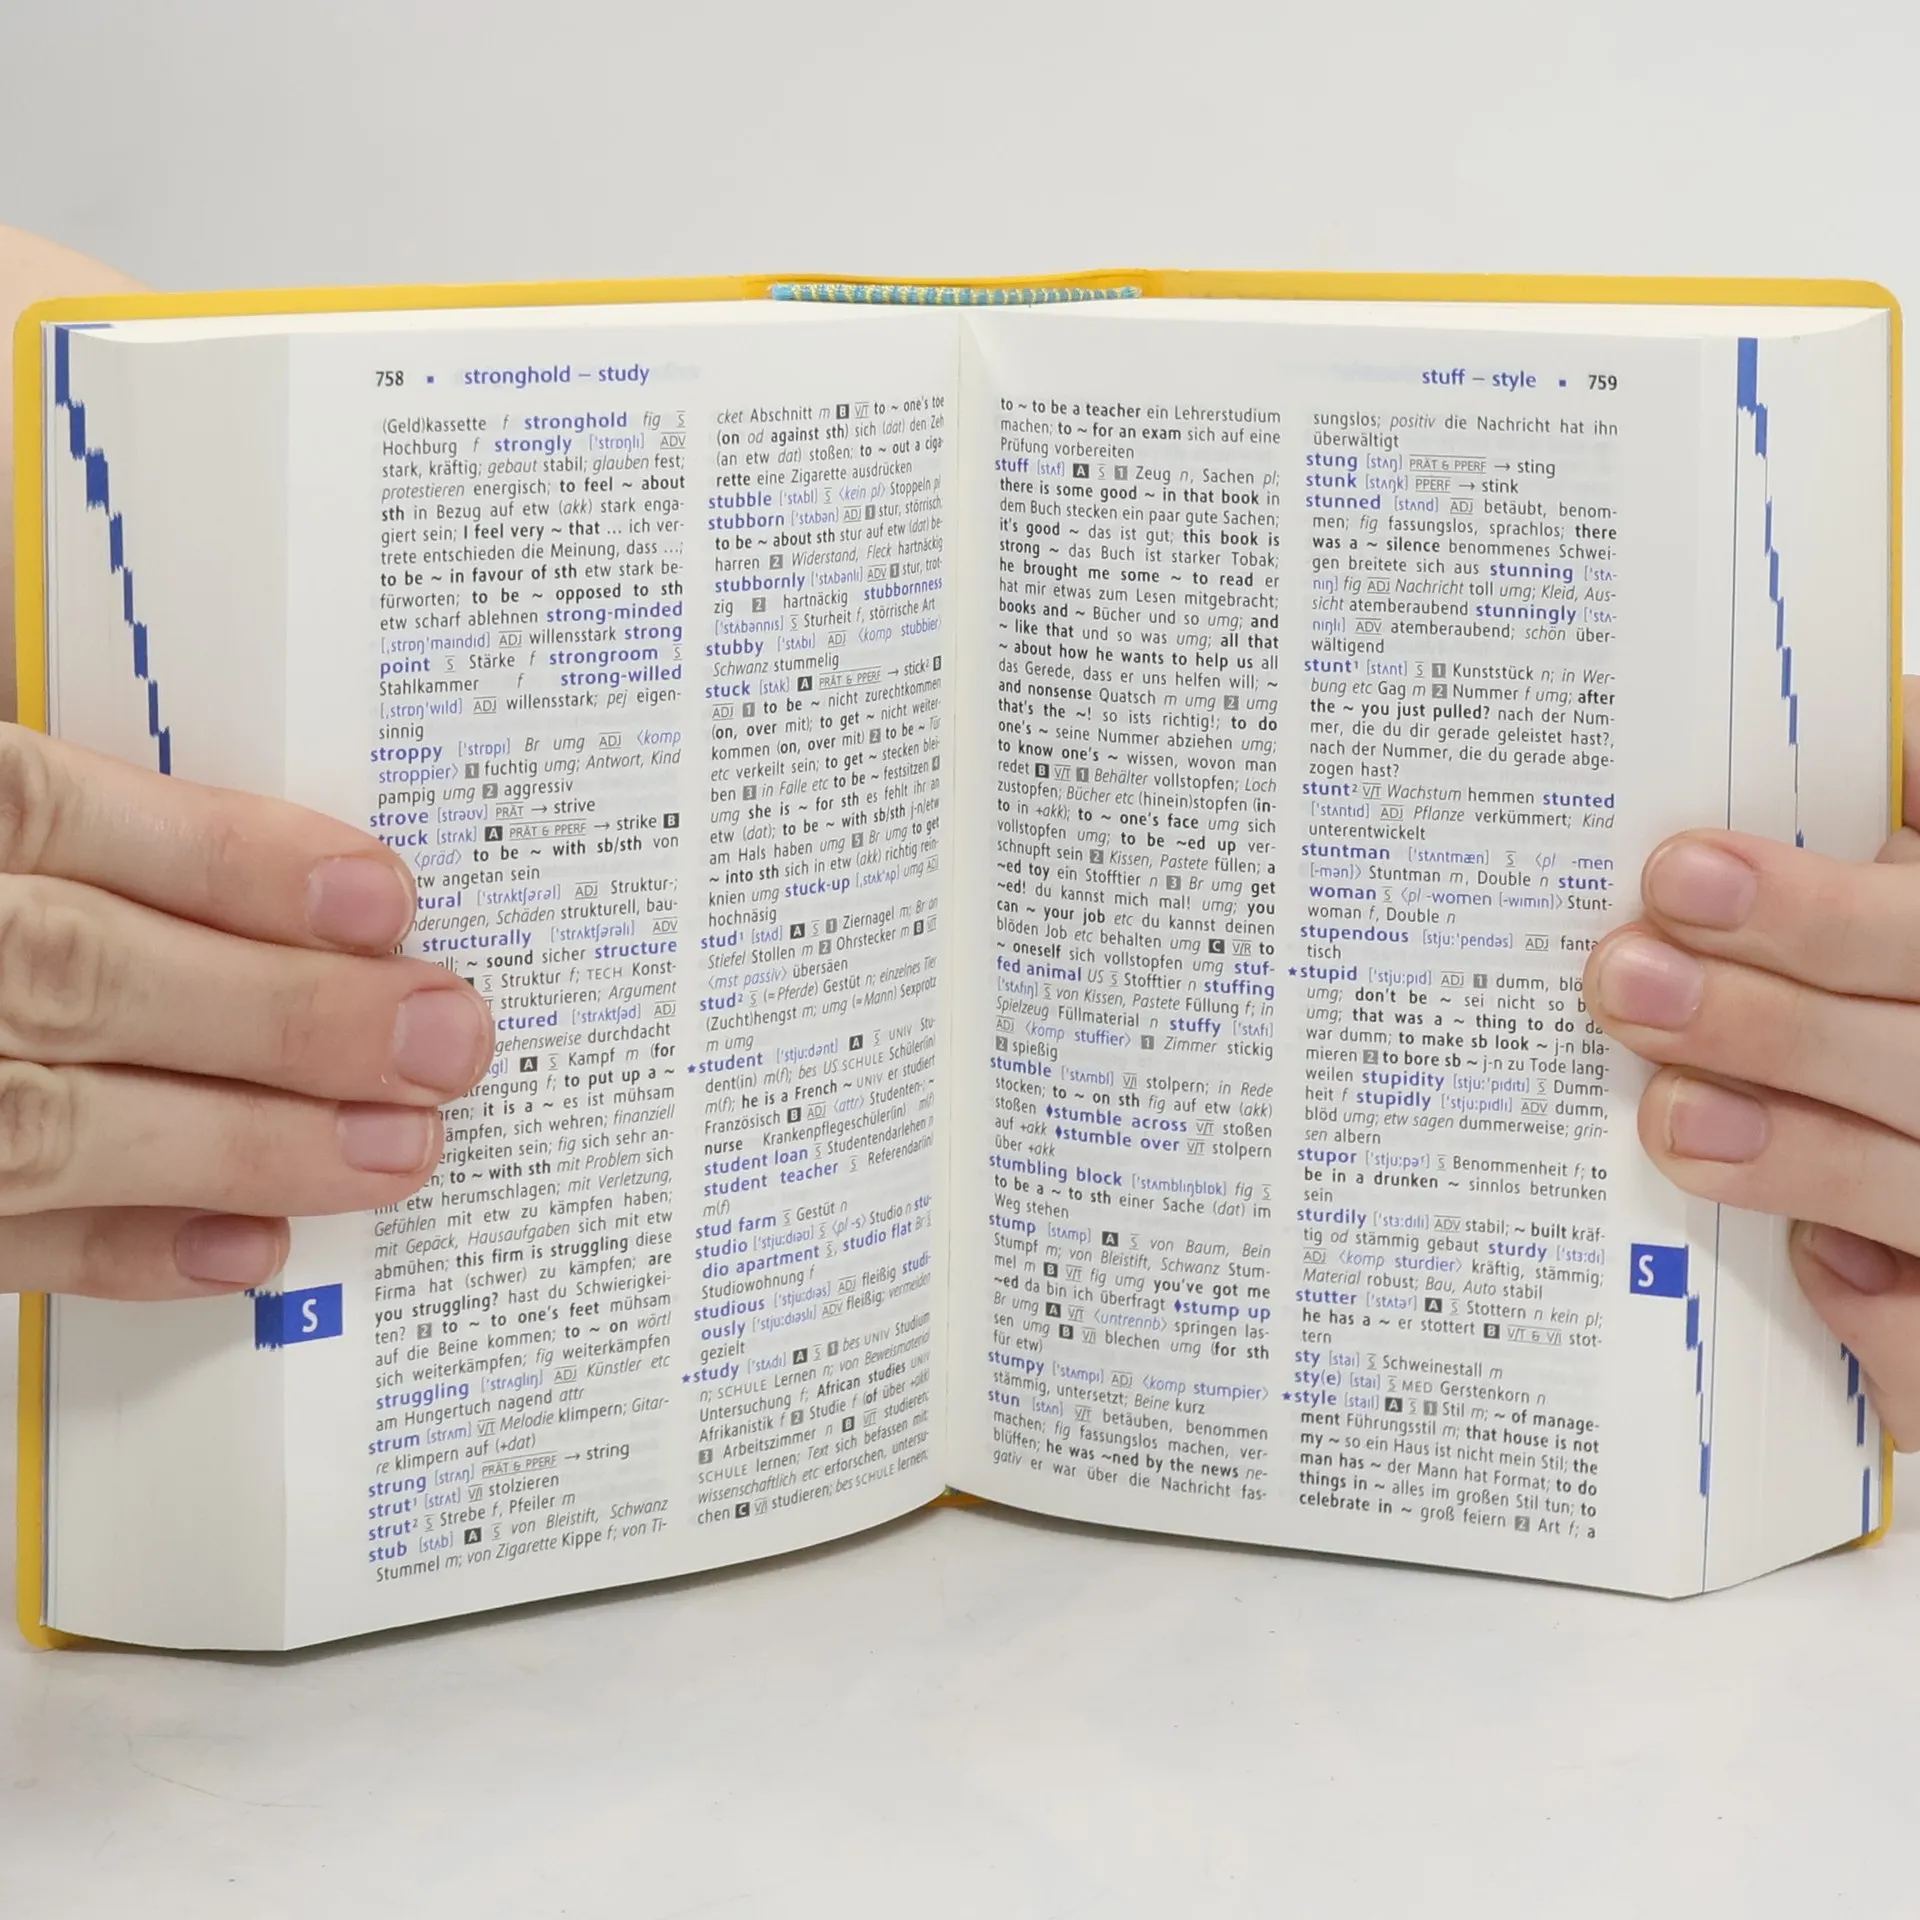 758 ▪ stronghold – study
(Geld)kassette f stronghold fig S
Hochburg f strongly [ˈstrɒŋlɪ] ADV
stark, kräftig; gebaut stabil; glauben fest;
protestieren energisch; to feel ~ about
sth in Bezug auf etw (akk) stark enga-
giert sein; I feel very ~ that ... ich ver-
trete entschieden die Meinung, dass ...;
to be ~ in favour of sth etw stark be-
fürworten; to be ~ opposed to sth
etw scharf ablehnen strong-minded
[ˌstrɒŋˈmaɪndɪd] ADJ willensstark strong
point S Stärke f strongroom S
Stahlkammer f strong-willed
[ˌstrɒŋˈwɪld] ADJ willensstark; pej eigen-
sinnig
stroppy [ˈstrɒpɪ] Br umg ADJ ⟨komp
stroppier⟩ 1 fuchtig umg; Antwort, Kind
pampig umg 2 aggressiv
strove [strəʊv] PRÄT → strive
truck [strʌk] A PRÄT & PPERF → strike B
⟨präd⟩ to be ~ with sb/sth von
tw angetan sein
tural [ˈstrʌktʃərəl] ADJ Struktur-;
nderungen, Schäden strukturell, bau-
structurally [ˈstrʌktʃərəlɪ] ADV
ell; ~ sound sicher structure
S Struktur f; TECH Konst-
strukturieren; Argument
ctured [ˈstrʌktʃəd] ADJ
gehensweise durchdacht
gl] A S Kampf m (for
trengung f; to put up a ~
ren; it is a ~ es ist mühsam
ämpfen, sich wehren; finanziell
erigkeiten sein; fig sich sehr an-
n; to ~ with sth mit Problem sich
mit etw herumschlagen; mit Verletzung,
Gefühlen mit etw zu kämpfen haben;
mit Gepäck, Hausaufgaben sich mit etw
abmühen; this firm is struggling diese
Firma hat (schwer) zu kämpfen; are
you struggling? hast du Schwierigkei-
ten? 2 to ~ to one's feet mühsam
auf die Beine kommen; to ~ on wörtl
sich weiterkämpfen; fig weiterkämpfen
struggling [ˈstrʌglɪŋ] ADJ Künstler etc
am Hungertuch nagend attr
strum [strʌm] V/T Melodie klimpern; Gitar-
re klimpern auf (+dat)
strung [strʌŋ] PRÄT & PPERF → string
strut¹ [strʌt] V/I stolzieren
strut² S Strebe f, Pfeiler m
stub [stʌb] A S von Bleistift, Schwanz
Stummel m; von Zigarette Kippe f; von Ti-
cket Abschnitt m B V/T to ~ one's toe
(on od against sth) sich (dat) den Zeh
(an etw dat) stoßen; to ~ out a ciga-
rette eine Zigarette ausdrücken
stubble [ˈstʌbl] S ⟨kein pl⟩ Stoppeln pl
stubborn [ˈstʌbən] ADJ 1 stur, störrisch;
to be ~ about sth stur auf etw (dat) be-
harren 2 Widerstand, Fleck hartnäckig
stubbornly [ˈstʌbənlɪ] ADV 1 stur, trot-
zig 2 hartnäckig stubbornness
[ˈstʌbənnɪs] S Sturheit f, störrische Art
stubby [ˈstʌbɪ] ADJ ⟨komp stubbier⟩
Schwanz stummelig
stuck [stʌk] A PRÄT & PPERF → stick² B
ADJ 1 to be ~ nicht zurechtkommen
(on, over mit); to get ~ nicht weiter-
kommen (on, over mit) 2 to be ~ Tür
etc verkeilt sein; to get ~ stecken blei-
ben 3 in Falle etc to be ~ festsitzen 4
umg she is ~ for sth es fehlt ihr an
etw (dat); to be ~ with sb/sth j-n/etw
am Hals haben umg 5 Br umg to get
~ into sth sich in etw (akk) richtig rein-
knien umg stuck-up [ˌstʌkˈʌp] umg ADJ
hochnäsig
stud¹ [stʌd] A S 1 Ziernagel m; Br an
Stiefel Stollen m 2 Ohrstecker m B V/T
⟨mst passiv⟩ übersäen
stud² S (=Pferde) Gestüt n; einzelnes Tier
(Zucht)hengst m; umg (=Mann) Sexprotz
m umg
★student [ˈstjuːdənt] A S UNIV Stu-
dent(in) m(f); bes US SCHULE Schüler(in)
m(f); he is a French ~ UNIV er studiert
Französisch B ADJ ⟨attr⟩ Studenten-; ~
nurse Krankenpflegeschüler(in) m(f)
student loan S Studentendarlehen n
student teacher S Referendar(in)
m(f)
stud farm S Gestüt n
studio [ˈstjuːdɪəʊ] S ⟨pl -s⟩ Studio n stu-
dio apartment S, studio flat Br S
Studiowohnung f
studious [ˈstjuːdɪəs] ADJ fleißig studi-
ously [ˈstjuːdɪəslɪ] ADV fleißig; vermeiden
gezielt
★study [ˈstʌdɪ] A S 1 bes UNIV Studium
n; SCHULE Lernen n; von Beweismaterial
Untersuchung f; African studies UNIV
Afrikanistik f 2 Studie f (of über +akk)
3 Arbeitszimmer n B V/T studieren;
SCHULE lernen; Text sich befassen mit;
wissenschaftlich etc erforschen, untersu-
chen C V/I studieren; bes SCHULE lernen;
stuff – style ▪ 759
to ~ to be a teacher ein Lehrerstudium
machen; to ~ for an exam sich auf eine
Prüfung vorbereiten
stuff [stʌf] A S 1 Zeug n, Sachen pl;
there is some good ~ in that book in
dem Buch stecken ein paar gute Sachen;
it's good ~ das ist gut; this book is
strong ~ das Buch ist starker Tobak;
he brought me some ~ to read er
hat mir etwas zum Lesen mitgebracht;
books and ~ Bücher und so umg; and
~ like that und so was umg; all that
~ about how he wants to help us all
das Gerede, dass er uns helfen will; ~
and nonsense Quatsch m umg 2 umg
that's the ~! so ists richtig!; to do
one's ~ seine Nummer abziehen umg;
to know one's ~ wissen, wovon man
redet B V/T 1 Behälter vollstopfen; Loch
zustopfen; Bücher etc (hinein)stopfen (in-
to in +akk); to ~ one's face umg sich
vollstopfen umg; to be ~ed up ver-
schnupft sein 2 Kissen, Pastete füllen; a
~ed toy ein Stofftier n 3 Br umg get
~ed! du kannst mich mal! umg; you
can ~ your job etc du kannst deinen
blöden Job etc behalten umg C V/R to
~ oneself sich vollstopfen umg stuf-
fed animal US S Stofftier n stuffing
[ˈstʌfɪŋ] S von Kissen, Pastete Füllung f; in
Spielzeug Füllmaterial n stuffy [ˈstʌfɪ]
ADJ ⟨komp stuffier⟩ 1 Zimmer stickig
2 spießig
stumble [ˈstʌmbl] V/I stolpern; in Rede
stocken; to ~ on sth fig auf etw (akk)
stoßen ♦stumble across V/T stoßen
auf +akk ♦stumble over V/T stolpern
über +akk
stumbling block [ˈstʌmblɪŋblɒk] fig S
to be a ~ to sth einer Sache (dat) im
Weg stehen
stump [stʌmp] A S von Baum, Bein
Stumpf m; von Bleistift, Schwanz Stum-
mel m B V/T fig umg you've got me
~ed da bin ich überfragt ♦stump up
Br umg A V/T ⟨untrennb⟩ springen las-
sen umg B V/I blechen umg (for sth
für etw)
stumpy [ˈstʌmpɪ] ADJ ⟨komp stumpier⟩
stämmig, untersetzt; Beine kurz
stun [stʌn] V/T betäuben, benommen
machen; fig fassungslos machen, ver-
blüffen; he was ~ned by the news ne-
gativ er war über die Nachricht fas-
sungslos; positiv die Nachricht hat ihn
überwältigt
stung [stʌŋ] PRÄT & PPERF → sting
stunk [stʌŋk] PPERF → stink
stunned [stʌnd] ADJ betäubt, benom-
men; fig fassungslos, sprachlos; there
was a ~ silence benommenes Schwei-
gen breitete sich aus stunning [ˈstʌ-
nɪŋ] fig ADJ Nachricht toll umg; Kleid, Aus-
sicht atemberaubend stunningly [ˈstʌ-
nɪŋlɪ] ADV atemberaubend; schön über-
wältigend
stunt¹ [stʌnt] S 1 Kunststück n; in Wer-
bung etc Gag m 2 Nummer f umg; after
the ~ you just pulled? nach der Num-
mer, die du dir gerade geleistet hast?,
nach der Nummer, die du gerade abge-
zogen hast?
stunt² V/T Wachstum hemmen stunted
[ˈstʌntɪd] ADJ Pflanze verkümmert; Kind
unterentwickelt
stuntman [ˈstʌntmæn] S ⟨pl -men
[-mən]⟩ Stuntman m, Double n stunt-
woman S ⟨pl -women [-wɪmɪn]⟩ Stunt-
woman f, Double n
stupendous [stjuːˈpendəs] ADJ fanta
tisch
★stupid [ˈstjuːpɪd] ADJ 1 dumm, blö
umg; don't be ~ sei nicht so b
umg; that was a ~ thing to do da
war dumm; to make sb look ~ j-n bla-
mieren 2 to bore sb ~ j-n zu Tode lang-
weilen stupidity [stjuːˈpɪdɪtɪ] S Dumm-
heit f stupidly [ˈstjuːpɪdlɪ] ADV dumm,
blöd umg; etw sagen dummerweise; grin-
sen albern
stupor [ˈstjuːpəʳ] S Benommenheit f; to
be in a drunken ~ sinnlos betrunken
sein
sturdily [ˈstɜːdɪlɪ] ADV stabil; ~ built kräf-
tig od stämmig gebaut sturdy [ˈstɜːdɪ]
ADJ ⟨komp sturdier⟩ kräftig, stämmig;
Material robust; Bau, Auto stabil
stutter [ˈstʌtəʳ] A S Stottern n kein pl;
he has a ~ er stottert B V/T & V/I stot-
tern
sty [staɪ] S Schweinestall m
sty(e) [staɪ] S MED Gerstenkorn n
★style [staɪl] A S 1 Stil m; ~ of manage-
ment Führungsstil m; that house is not
my ~ so ein Haus ist nicht mein Stil; the
man has ~ der Mann hat Format; to do
things in ~ alles im großen Stil tun; to
celebrate in ~ groß feiern 2 Art f; a
S
S